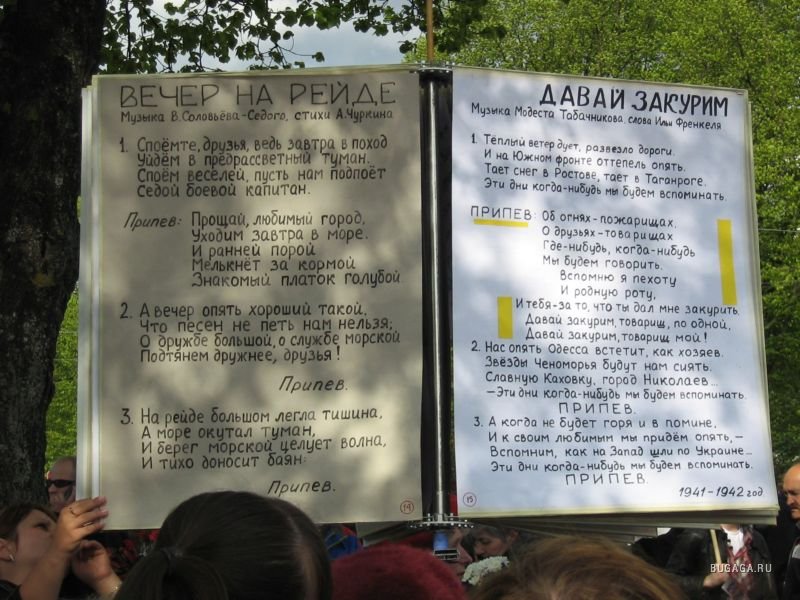 ВЕЧЕР НА РЕЙДЕ
Музыка В.Соловьёва-Седого, стихи А.Чуркина
1. Споёмте, друзья, ведь завтра в поход
Уйдём в предрассветный туман.
Споём веселей, пусть нам подпоёт
Седой боевой капитан.
Припев: Прощай, любимый город,
Уходим завтра в море.
И ранней порой
Мелькнёт за кормой
Знакомый платок голубой.
2. А вечер опять хороший такой,
Что песен не петь нам нельзя;
О дружбе большой, о службе морской
Подтянем дружнее, друзья!
Припев.
3. На рейде большом легла тишина,
А море окутал туман,
И берег морской целует волна,
И тихо доносит баян:
Припев.
14
ДАВАЙ ЗАКУРИМ
Музыка Модеста Табачникова, слова Ильи Френкеля
1. Тёплый ветер дует, развезло дороги.
И на Южном фронте оттепель опять.
Тает снег в Ростове, тает в Таганроге.
Эти дни когда-нибудь мы будем вспоминать.
ПРИПЕВ: Об огнях-пожарищах,
О друзьях-товарищах
Где-нибудь, когда-нибудь
Мы будем говорить.
Вспомню я пехоту
И родную роту,
И тебя-за то, что ты дал мне закурить.
Давай закурим, товарищ, по одной,
Давай закурим, товарищ мой!
2. Нас опять Одесса встетит, как хозяев.
Звёзды Черноморья будут нам сиять.
Славную Каховку, город Николаев...
-Эти дни когда-нибудь мы будем вспоминать.
ПРИПЕВ.
3. А когда не будет горя и в помине,
И к своим любимым мы придём опять,-
Вспомним, как на Запад шли по Украине...
Эти дни когда-нибудь мы будем вспоминать.
ПРИПЕВ.
1941-1942 год.
15
BUGAGA.RU